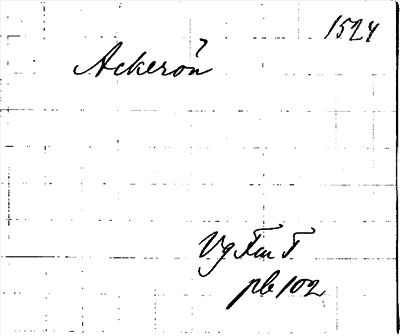 1524
Ackerön
Vg Fin T.
pb 102